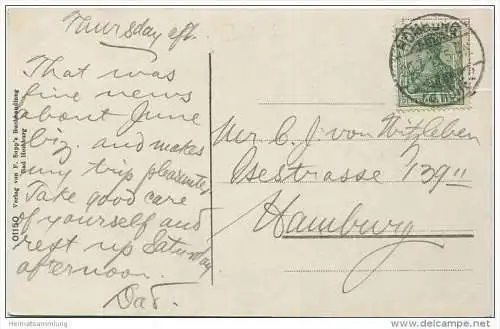 Thursday aft.
That was
fine news
about June
biz. and makes
my trip pleasanter
Take good care
of yourself and
rest up Saturday
afternoon.
Dad.
01150 Verlag von F. Supp's Buchhandlung
Bad Homburg
HOMBURG
Mr C. J. von Witzleben
Isestrasse 139 II
Hamburg
Heimatsammlung
www.delcampe.net